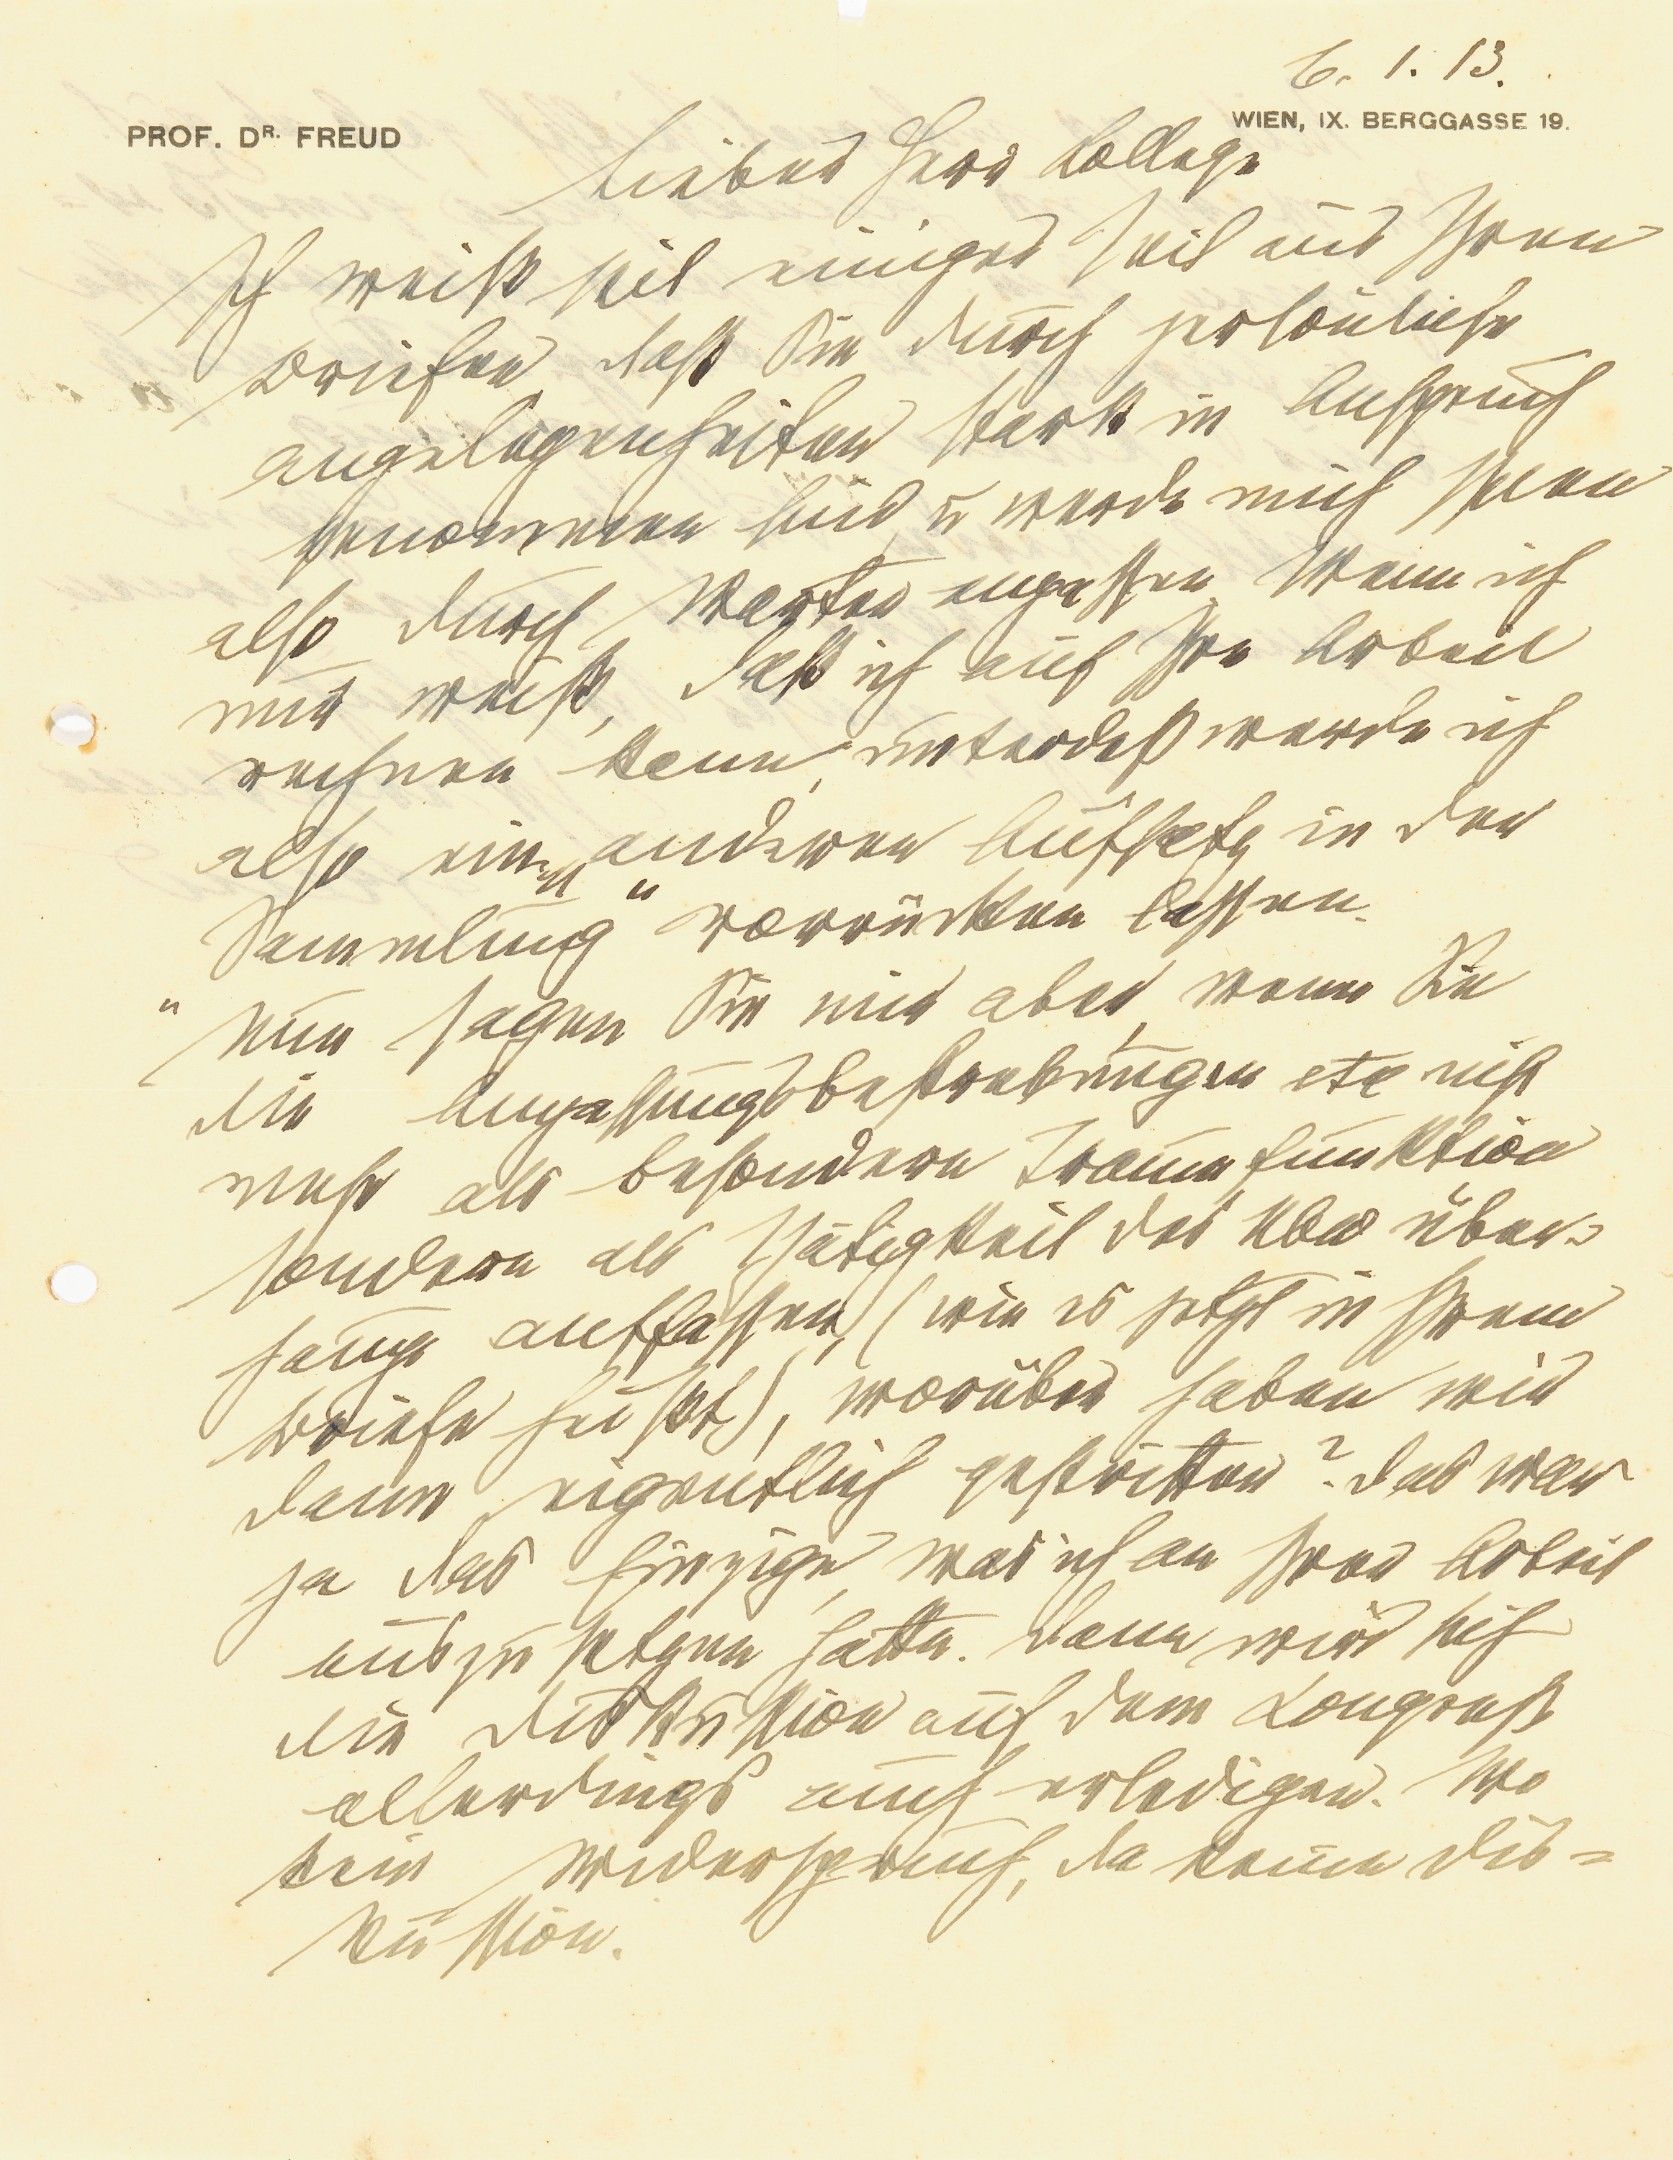 6. 1. 13.
PROF. DR. FREUD
WIEN, IX. BERGGASSE 19.
Lieber Herr College
Ich weiß seit einiger Zeit aus Ihren
Briefen, daß Sie durch persönliche
Angelegenheiten stark in Anspruch
genommen sind, u werde mich Ihnen
also durch Warten anpassen. Wenn ich
nur weiß, daß ich auf Ihre Arbeit
rechnen kann, unterdeß werde ich
also einen anderen Aufsatz in der
"Sammlung" vorrücken lassen.
Nun sagen Sie mir aber, wenn Sie
die Anpassungsbestrebungen etc nicht
mehr als besondere Traumfunktion
sondern als Thätigkeit des Ubw über-
haupt auffassen, (wie es jetzt in Ihrem
Briefe heißt), worüber haben wir
dann eigentlich gestritten? Das war
ja das Einzige, was ich an Ihrer Arbeit
auszusetzen hatte. Dann wird sich
die Diskussion auf dem Congreß
allerdings auch erledigen. Wo
kein Widerspruch, da keine Dis-
kussion.